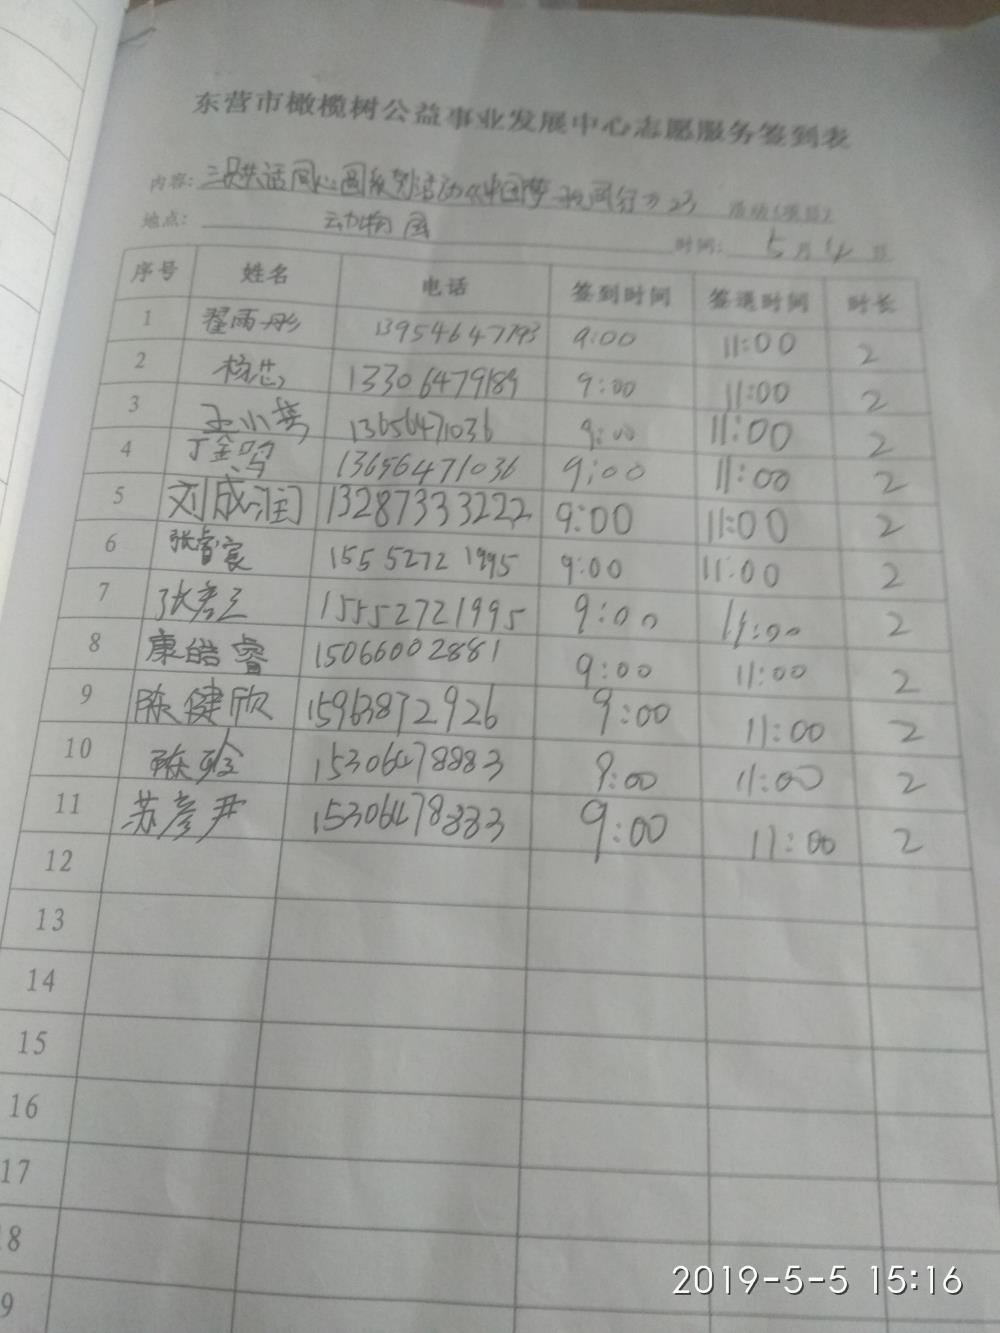 东营市橄榄树公益事业发展中心志愿服务签到表
内容: 同心圆系列活动《中国梦 活动(项目)
地点: 动物园 时间: 5月4日
序号 姓名 电话 签到时间 签退时间 时长
1 翟雨彤 13954647793 9:00 11:00 2
2 杨芯 13306479189 9:00 11:00 2
3 王小燕 13656471036 9:00 11:00 2
4 丁金鸣 13656471036 9:00 11:00 2
5 刘成润 13287333222 9:00 11:00 2
6 张睿宸 15552721995 9:00 11:00 2
7 张彦 15552721995 9:00 11:00 2
8 康皓睿 15066002881 9:00 11:00 2
9 陈健欣 15963872926 9:00 11:00 2
10 15306478883 9:00 11:00 2
11 苏彦尹 15306478883 9:00 11:00 2
12
13
14
15
16
17
18
9
2019-5-5 15:16